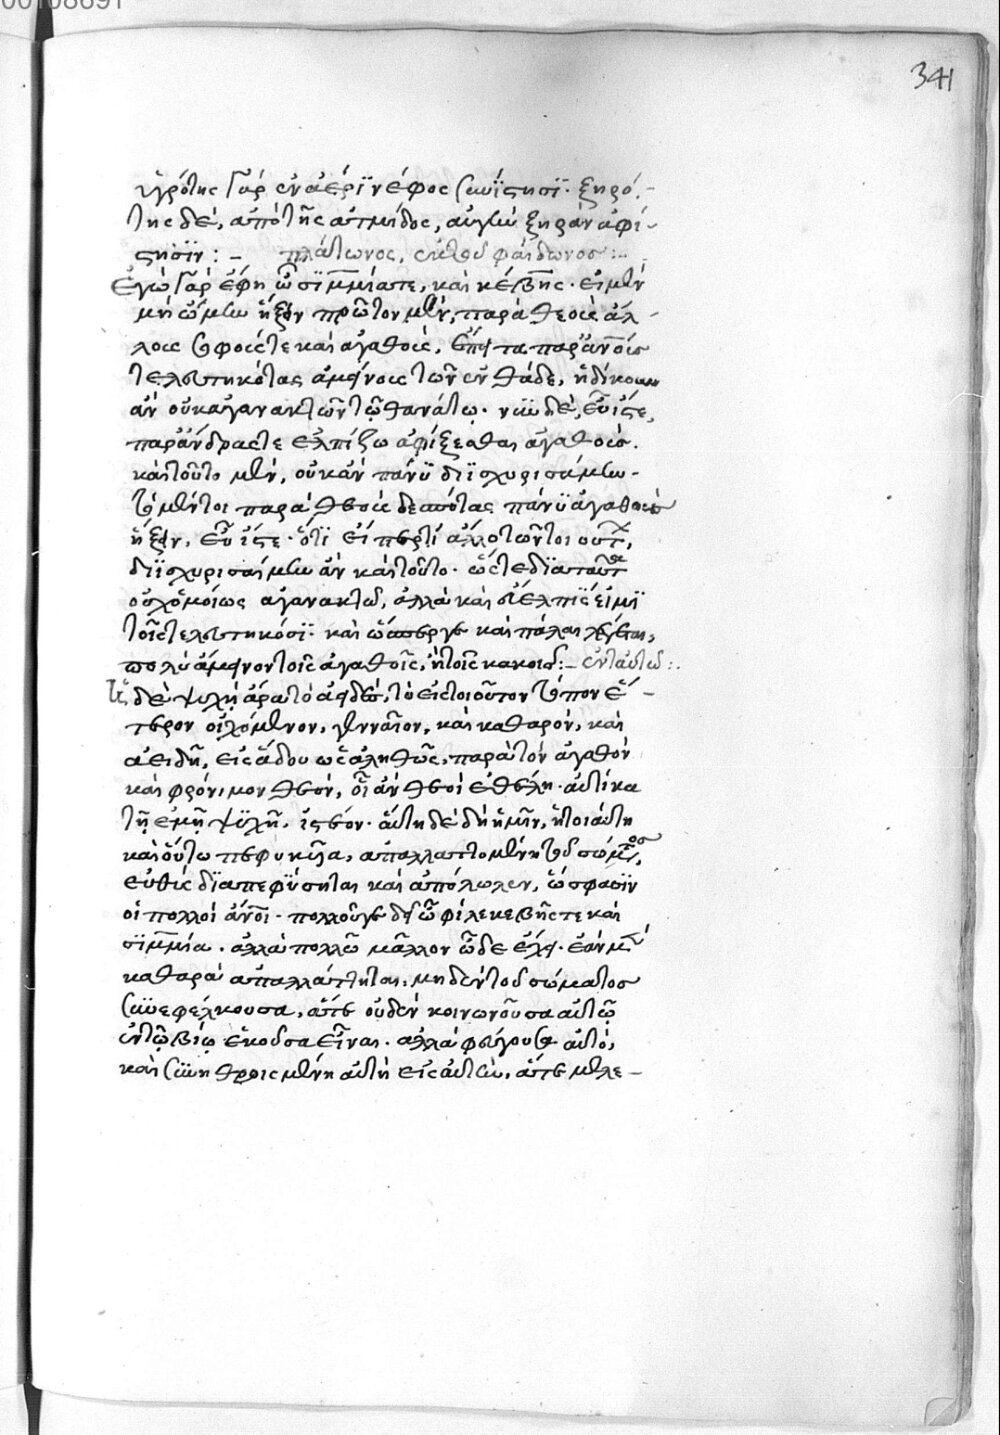 00108691
341
ὑγρότης γὰρ ἐν ἀέρϊ νέφος συνΐστησϊ· ξηρό-
της δὲ, ἀπὸ τῆς ἀτμίδος, αὐγὴν ξηρὰν ἀφί-
στησϊν :– πλάτωνος, ἐκ τοῦ φαίδωνος :–
Ἐγὼ γὰρ ἔφη ὦ σϊμμίατε, καὶ κέβης· εἰ μὲν
μὴ ὤμην ἥξειν πρῶτον μὲν, παρὰ θεοὺς ἄλ-
λους σοφούς τε καὶ ἀγαθοὺς, ἔπειτα παρ' ἀνους
τελευτηκότας ἀμείνους τῶν ἐνθάδε, ἠδίκουν
ἂν οὐκ ἀγανακτῶν τῶ θανάτω· νῦν δὲ, εὖ ἴστε,
παρ' ἄνδρας τε ἐλπίζω ἀφίξεσθαι ἀγαθούς.
καὶ τοῦτο μὲν, οὐκ ἂν πάνϋ διϊσχυρισαίμην·
τὸ μέντοι παρὰ θεοὺς δεσπότας πάνϋ ἀγαθοὺς
ἥξειν, εὖ ἴστε· ὅτϊ εἴπερ τί ἄλλο τῶν τοιούτ,
διϊσχυρισαίμην ἂν καὶ τοῦτο· ὥστε δϊὰ ταῦτα
οὐχ' ὁμοίως ἀγανακτῶ, ἀλλὰ καὶ εὔελπίς εἰμϊ
τοῖς τελευτηκόσϊ· καὶ ὥσπερ γε καὶ πάλαι λέγεται,
πολὺ ἄμεινον τοῖς ἀγαθοῖς, ἢ τοῖς κακοῖς :– ἐν ταὐτῶ :.
Ἡ δὲ ψυχὴ ἄρα τὸ ἀειδὲς, τὸ εἰς τοιοῦτον τόπον ἕ-
τερον οἰχόμενον, γενναῖον, καὶ καθαρὸν, καὶ
ἀειδῆ, εἰς ἅδου ὡς ἀληθῶς, παρὰ τὸν ἀγαθὸν
καὶ φρόνιμον θεὸν, οἷ ἂν θεοὶ ἐθέλη· αὐτίκα
τῆ ἐμῆ ψϋχῆ, ἰστέον· αὕτη δὲ δὴ ἡμῖν, ἡ τοιαύτη
καὶ οὕτω πεφυκυῖα, ἀπαλλαττομένη τοῦ σώματος,
εὐθὺς δϊαπεφΰσηται καὶ ἀπόλωλεν, ὥς φασϊν
οἱ πολλοὶ ἄνοι· πολλοῦγε δεῖ ὦ φίλε κεβῆς τε καὶ
σϊμμία· ἀλλὰ πολλῶ μᾶλλον ὧδε ἔχει· ἐὰν μὲν
καθαρὰ ἀπαλλάττηται, μηδὲν τοῦ σώματος
συνεφέλκουσα, ἅτε οὐδὲν κοινωνοῦσα αὐτῶ
ἐν τῶ βίω ἑκοῦσα εἶναι· ἀλλὰ φεύγουσα αὐτὸ,
καὶ συνηθροισμένη αὐτὴ εἰς αὑτὴν, ἅτε μελε-